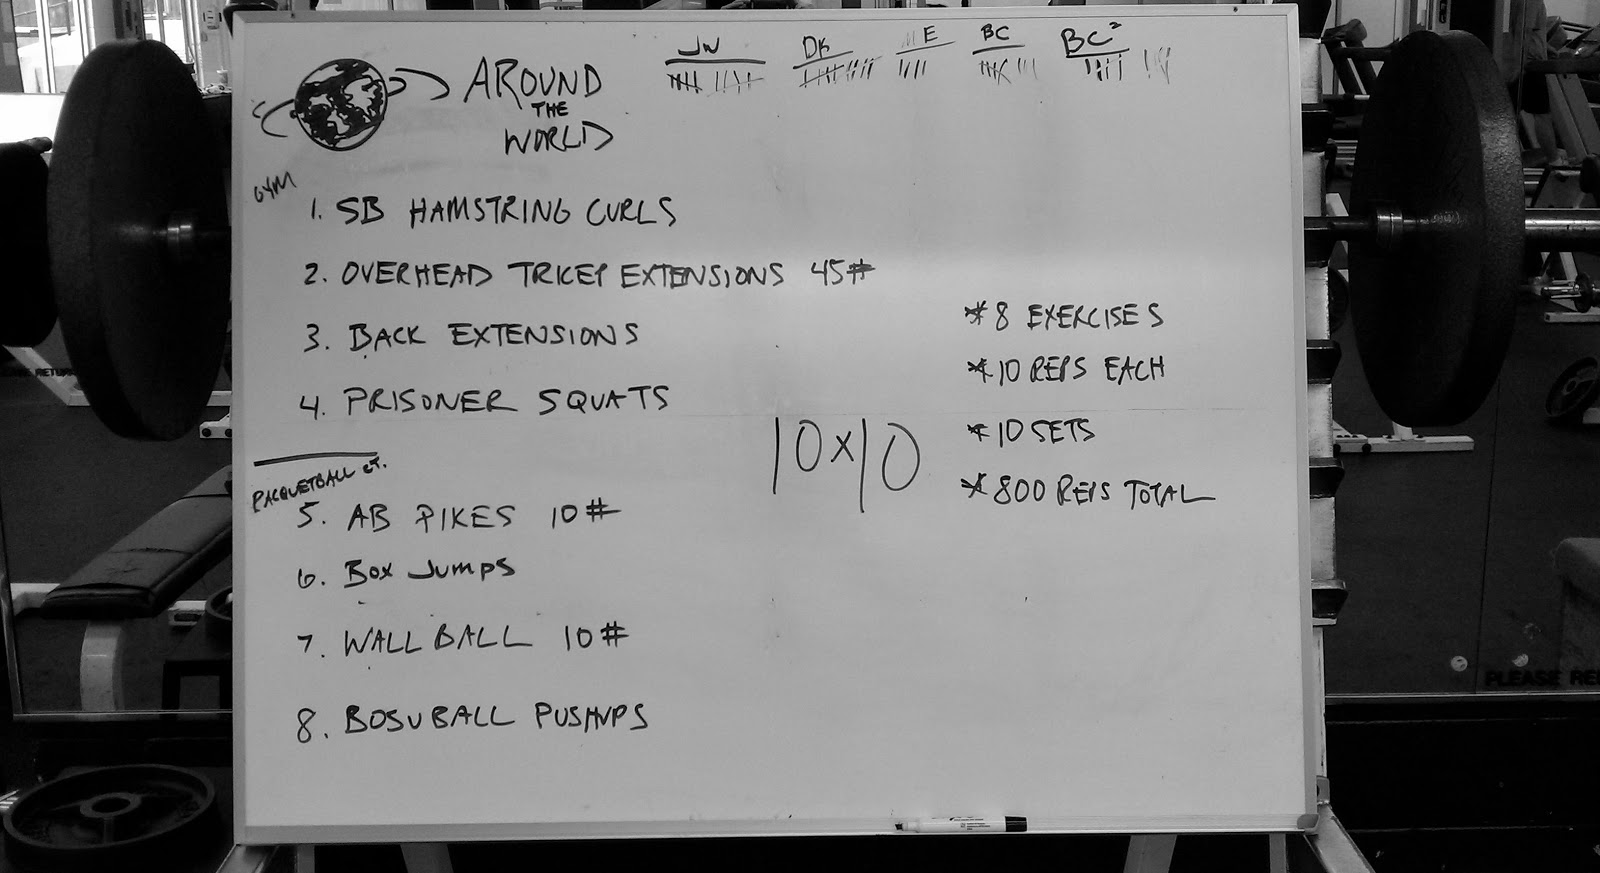 JW DK ME BC BC²
AROUND
THE
WORLD
GYM
1. SB HAMSTRING CURLS
2. OVERHEAD TRICEP EXTENSIONS 45#
3. BACK EXTENSIONS
4. PRISONER SQUATS
RACQUETBALL CT.
5. AB PIKES 10#
6. BOX JUMPS
7. WALL BALL 10#
8. BOSU BALL PUSHUPS
10x10
*8 EXERCISES
*10 REPS EACH
*10 SETS
*800 REPS TOTAL
PLEASE
RETU